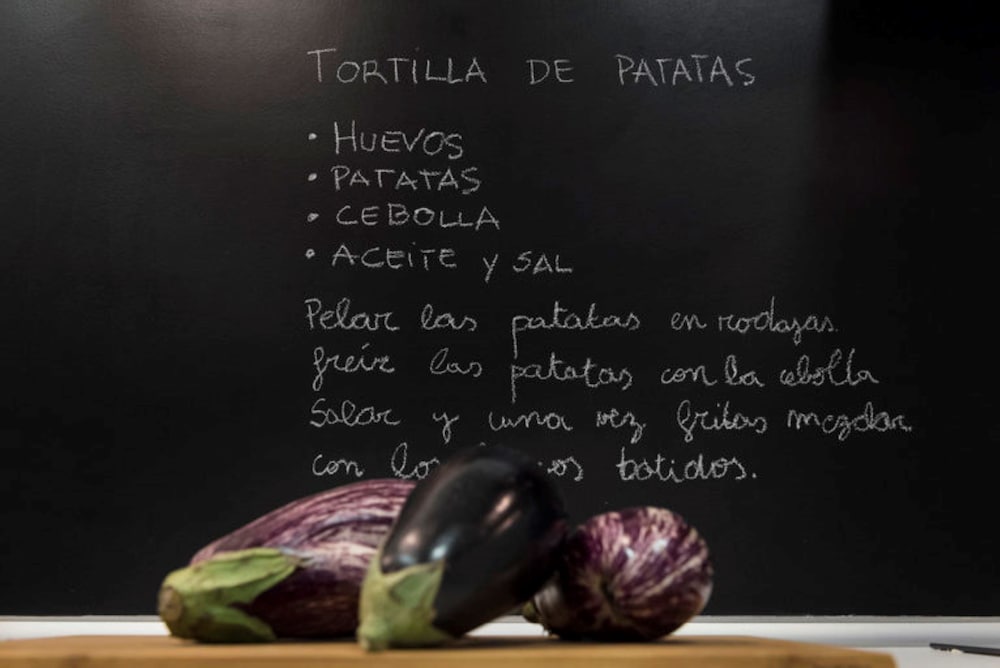 TORTILLA DE PATATAS
• HUEVOS
• PATATAS
• CEBOLLA
• ACEITE y SAL
Pelar las patatas en rodajas
freír las patatas con la cebolla
Salar y una vez fritas mezclar
con los batidos.